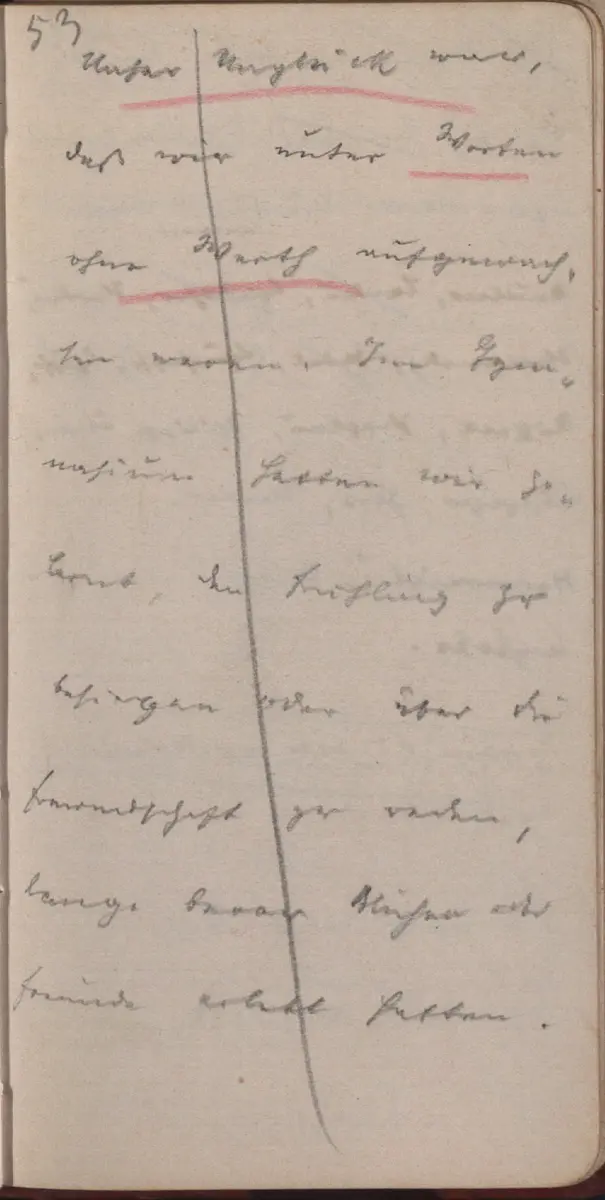 53
Unser Unglück war,
daß wir unter Worten
ohne Werth aufgewach„
sen waren. Im Gym„
nasium hatten wir ge„
lernt, den Frühling zu
besingen oder über die
Freundschaft zu reden,
lange bevor Blüthen oder
Freunde erlebt hatten.